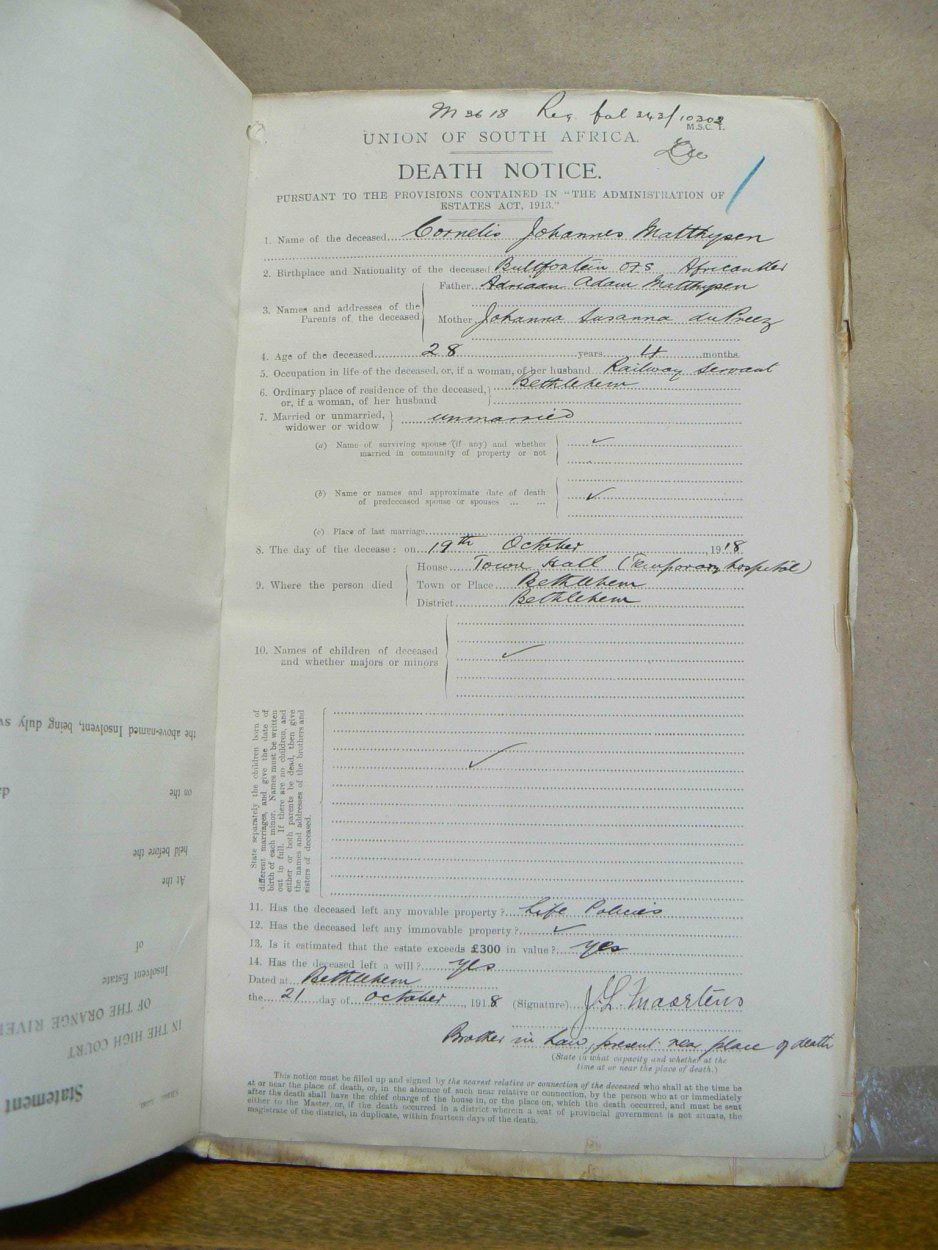 M 3618 Reg. fol 343/10303
M.S.C. 1.
UNION OF SOUTH AFRICA.
DEATH NOTICE.
PURSUANT TO THE PROVISIONS CONTAINED IN "THE ADMINISTRATION OF
ESTATES ACT, 1913."
1. Name of the deceased Cornelis Johannes Matthysen
2. Birthplace and Nationality of the deceased Bultfontein OFS Africander
3. Names and addresses of the Parents of the deceased
Father Adriaan Adam Matthysen
Mother Johanna Susanna du Preez
4. Age of the deceased 28 years 4 months.
5. Occupation in life of the deceased, or, if a woman, of her husband Railway Servant
6. Ordinary place of residence of the deceased, Bethlehem
or, if a woman, of her husband
7. Married or unmarried, unmarried
widower or widow
(a) Name of surviving spouse (if any) and whether ✓
married in community of property or not
(b) Name or names and approximate date of death ✓
of predeceased spouse or spouses ... ...
(c) Place of last marriage
8. The day of the decease: on 19th October, 1918
9. Where the person died
House Town Hall (Temporary hospital)
Town or Place Bethlehem
District Bethlehem
10. Names of children of deceased ✓
and whether majors or minors
State separately the children born of
different marriages, and give the date of
birth of each minor. Names must be written
out in full. If there are no children, and
either or both parents be dead, then give
the names and addresses of the brothers and
sisters of deceased.
✓
11. Has the deceased left any movable property? Life Policies
12. Has the deceased left any immovable property? ✓
13. Is it estimated that the estate exceeds £300 in value? yes
14. Has the deceased left a will? yes
Dated at Bethlehem
the 21 day of October, 1918 (Signature) J. L. Maartens
Brother in Law, present near place of death
(State in what capacity and whether at the
time at or near the place of death.)
This notice must be filled up and signed by the nearest relative or connection of the deceased who shall at the time be
at or near the place of death, or, in the absence of such near relative or connection, by the person who at or immediately
after the death shall have the chief charge of the house in, or the place on, which the death occurred, and must be sent
either to the Master, or, if the death occurred in a district wherein a seat of provincial government is not situate, the
magistrate of the district, in duplicate, within fourteen days of the death.
Statement
IN THE HIGH COURT
OF THE ORANGE RIVER
Insolvent Estate
of
At the
held before the
on the
the above-named Insolvent, being duly